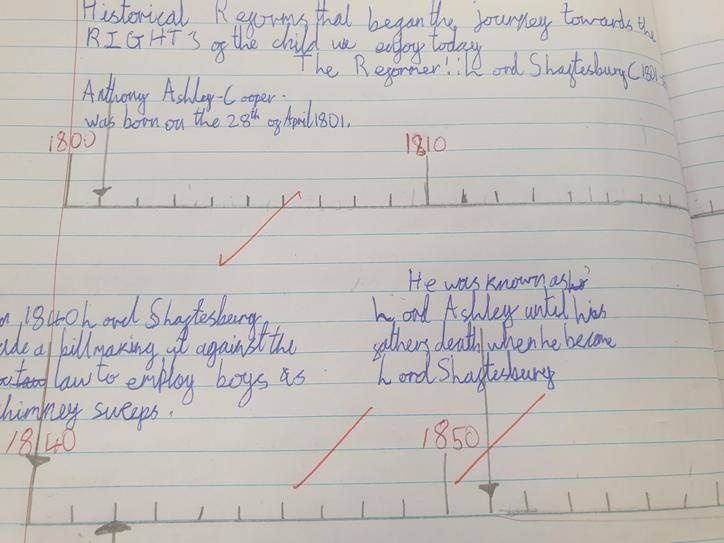 Historical Regorms that began the journey towards the
RIGHTS of the child we enjoy today
The Regormer!: Lord Shaftesbury (1801-
Anthony Ashley-Cooper.
was born on the 28th of April 1801.
1800 1810
He was known as
1840 Lord Shaftesbury
Lord Ashley until his
a bill making it against the
fathers death when he become
law to employ boys as
Lord Shaftesbury
himney sweeps.
1840 1850